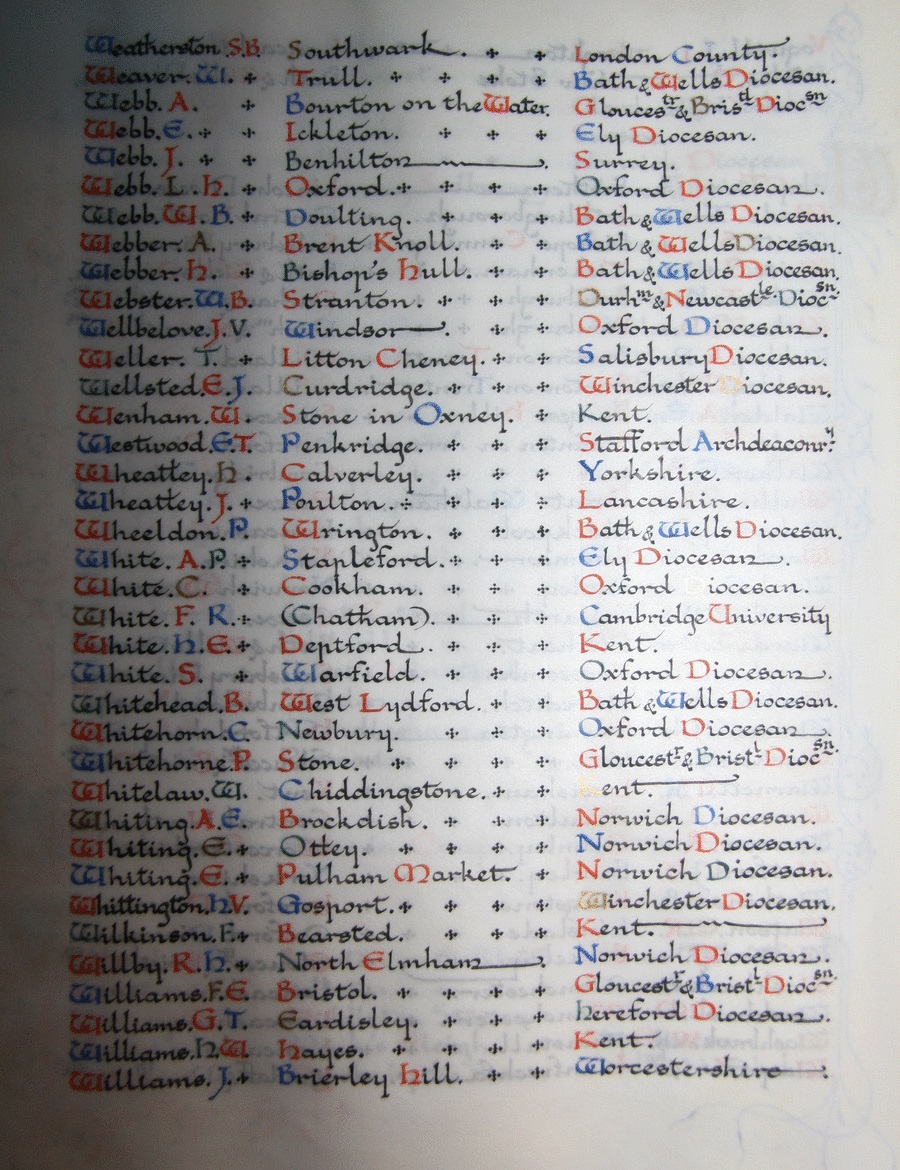 Weatherston S.B. Southwark. London County.
Weaver. W. Trull. Bath & Wells Diocesan.
Webb. A. Bourton on the Water. Gloucestr & Bristl Diocsn
Webb. E. Ickleton. Ely Diocesan.
Webb. J. Benhilton. Surrey.
Webb. L. H. Oxford. Oxford Diocesan.
Webb. W. B. Doulting. Bath & Wells Diocesan.
Webber. A. Brent Knoll. Bath & Wells Diocesan.
Webber. H. Bishop's Hull. Bath & Wells Diocesan.
Webster. W. B. Stranton. Durhm & Newcastle Diocsn
Wellbelove. J. V. Windsor. Oxford Diocesan.
Weller. T. Litton Cheney. Salisbury Diocesan.
Wellsted. E. J. Curdridge. Winchester Diocesan.
Wenham. W. Stone in Oxney. Kent.
Westwood. E. T. Penkridge. Stafford Archdeaconry
Wheatley. H. Calverley. Yorkshire.
Wheatley. J. Poulton. Lancashire.
Wheeldon. P. Wrington. Bath & Wells Diocesan.
White. A. P. Stapleford. Ely Diocesan.
White. C. Cookham. Oxford iocesan.
White. F. R. (Chatham). Cambridge University
White. H. E. Deptford. Kent.
White. S. Warfield. Oxford Diocesan.
Whitehead. B. West Lydford. Bath & Wells Diocesan.
Whitehorn. C. Newbury. Oxford Diocesan.
Whitehorne. P. Stone. Gloucestr & Bristl Diocsn.
Whitelaw. W. Chiddingstone. Kent.
Whiting. A. E. Brockdish. Norwich Diocesan.
Whiting. E. Ottey. Norwich Diocesan.
Whiting. E. Pulham Market. Norwich Diocesan.
Whittington. H. V. Gosport. Winchester Diocesan.
Wilkinson. F. Bearsted. Kent.
Willby. R. H. North Elmham. Norwich Diocesan.
Williams. F. E. Bristol. Gloucestr & Bristl Diocsn
Williams. G. T. Eardisley. Hereford Diocesan.
Williams. H. W. Hayes. Kent.
Williams. J. Brierley Hill. Worcestershire.